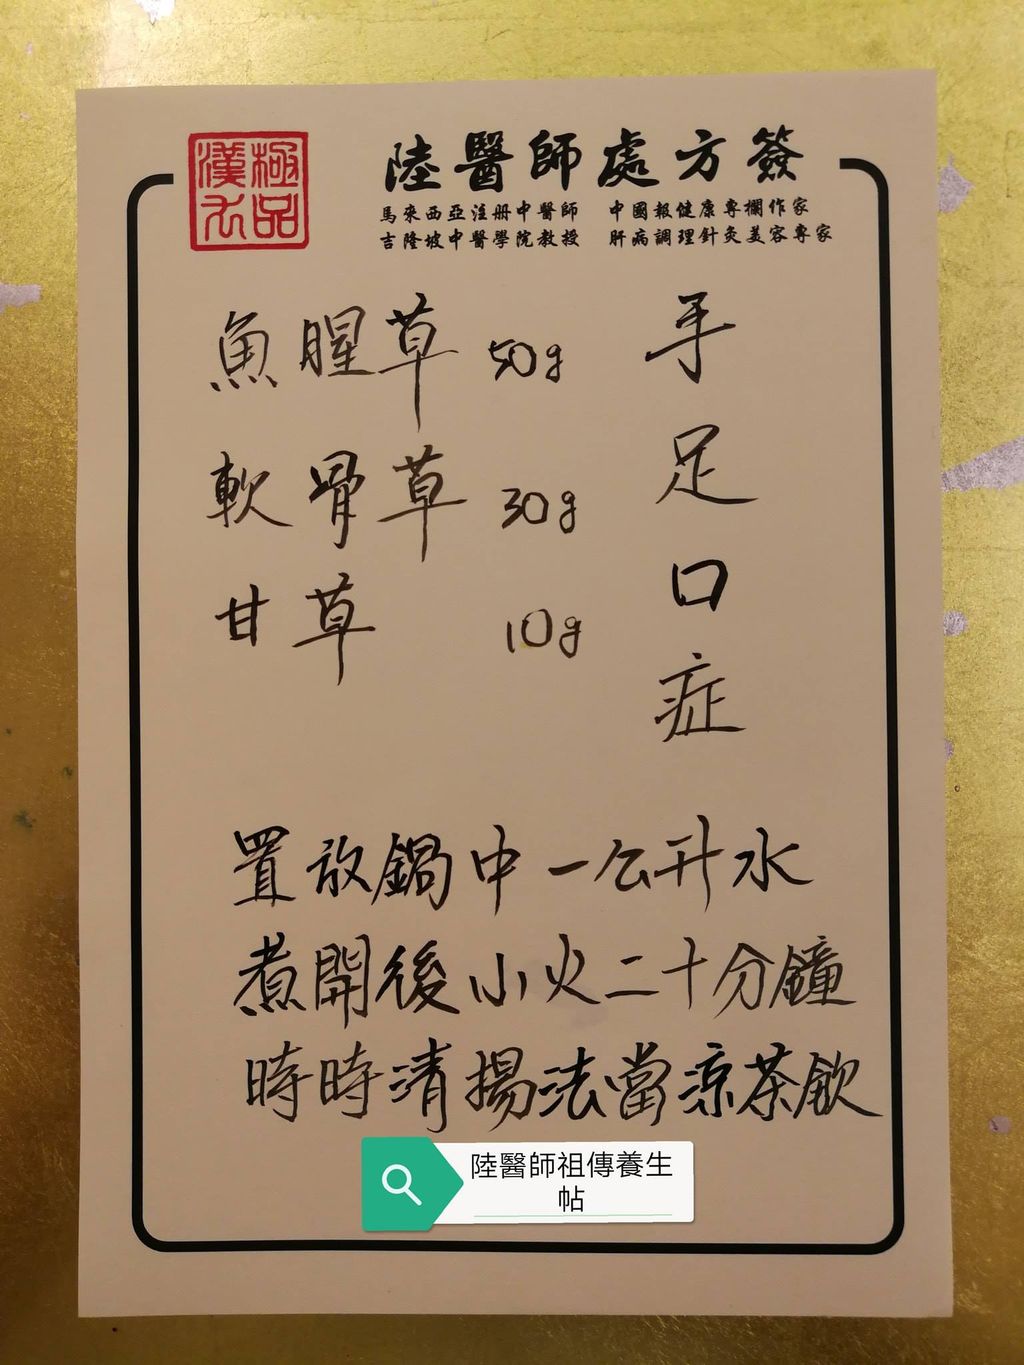 極品
漢方
陸醫師處方簽
馬來西亞注冊中醫師 中國報健康專欄作家
吉隆坡中醫學院教授 肝病調理針灸美容專家
手足口症
魚腥草 50g
軟骨草 30g
甘草 10g
置放鍋中一公升水
煮開後小火二十分鐘
時時清揚法當涼茶飲
陸醫師祖傳養生
帖